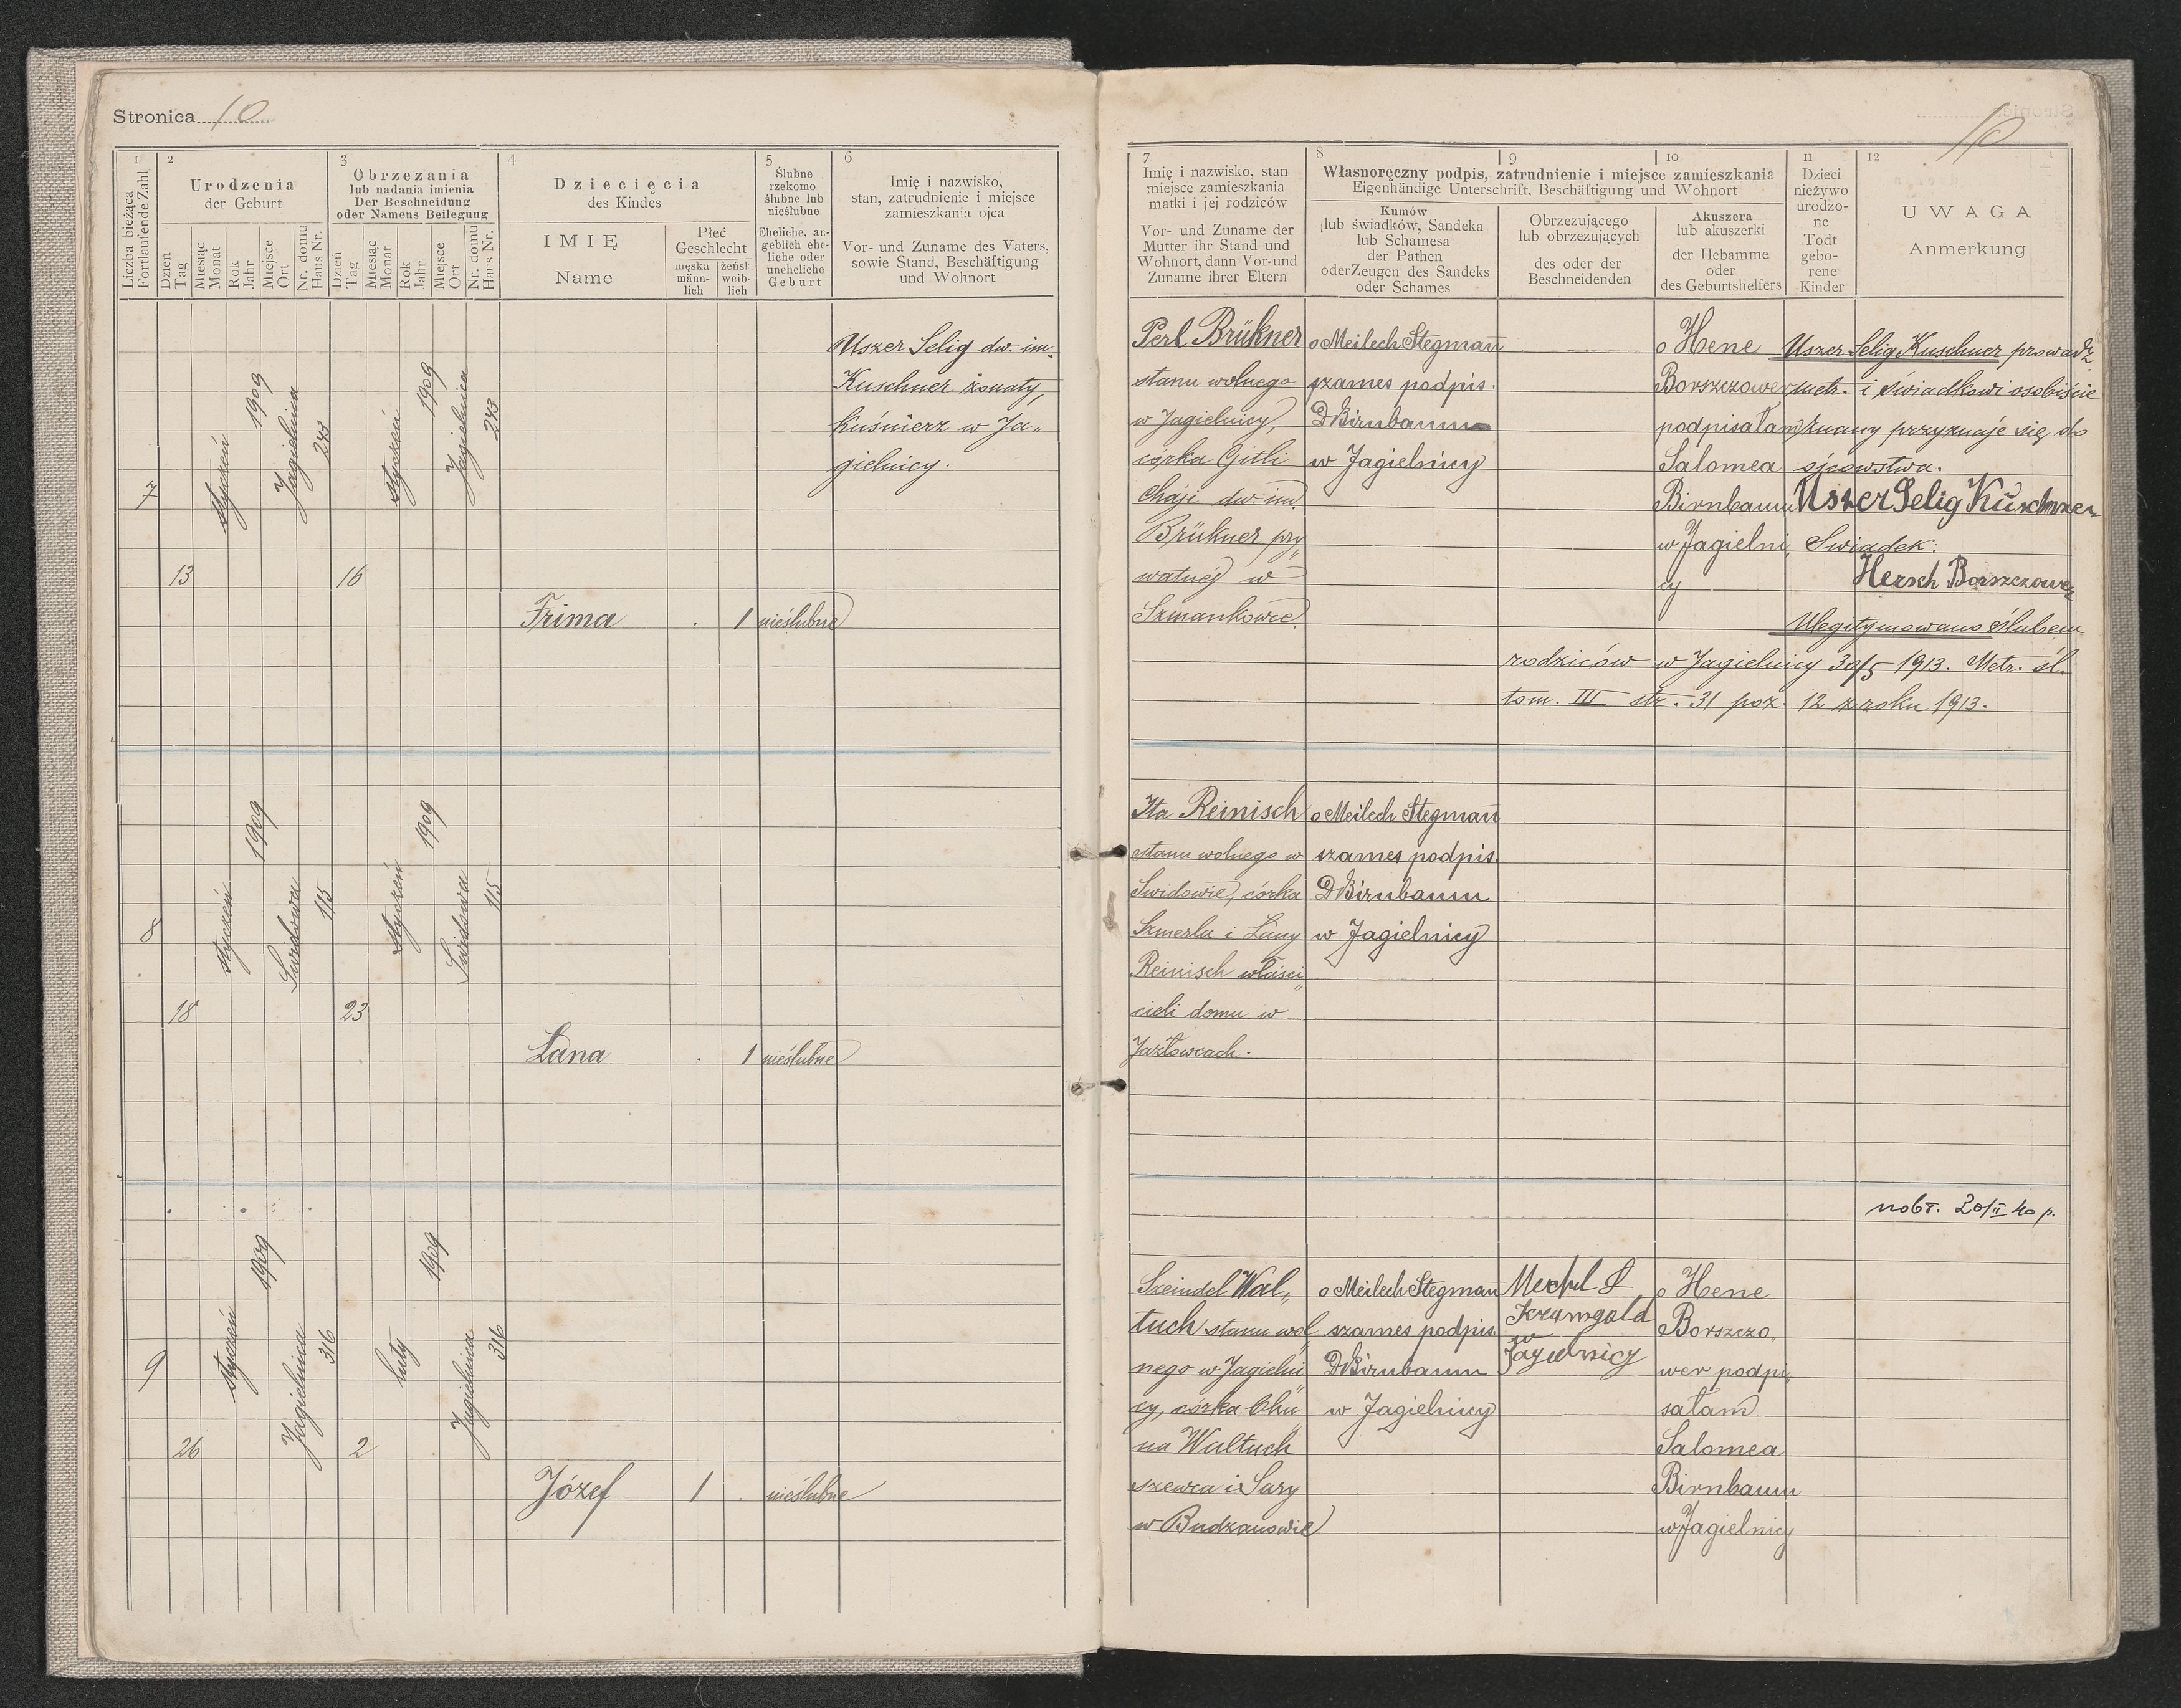 Stronica 10
10
1
Liczba bieżąca
Fortlaufende Zahl
2
Urodzenia
der Geburt
Dzień
Tag
Miesiąc
Monat
Rok
Jahr
Miejsce
Ort
Nr. domu
Haus Nr.
3
Obrzezania
lub nadania imienia
Der Beschneidung
oder Namens Beilegung
Dzień
Tag
Miesiąc
Monat
Rok
Jahr
Miejsce
Ort
Nr. domu
Haus Nr.
4
Dziecięcia
des Kindes
IMIĘ
Name
Płeć
Geschlecht
męska
männ-
lich
żeńsk
weib-
lich
5
Ślubne
rzekomo
ślubne lub
nieślubne
Eheliche, an-
geblich ehe-
liche oder
uneheliche
Geburt
6
Imię i nazwisko,
stan, zatrudnienie i miejsce
zamieszkania ojca
Vor- und Zuname des Vaters,
sowie Stand, Beschäftigung
und Wohnort
7
Imię i nazwisko, stan
miejsce zamieszkania
matki i jej rodziców
Vor- und Zuname der
Mutter ihr Stand und
Wohnort, dann Vor-und
Zuname ihrer Eltern
8
9
10
Własnoręczny podpis, zatrudnienie i miejsce zamieszkania
Eigenhändige Unterschrift, Beschäftigung und Wohnort
Kumów
lub świadków, Sandeka
lub Schamesa
der Pathen
oder Zeugen des Sandeks
oder Schames
Obrzezującego
lub obrzezujących
des oder der
Beschneidenden
Akuszera
lub akuszerki
der Hebamme
oder
des Geburtshelfers
11
Dzieci
nieżywo
urodzo-
ne
Todt
gebo-
rene
Kinder
12
UWAGA
Anmerkung
7
13
styczeń
1909
Jagielnica
243
16
styczeń
1909
Jagielnica
243
Frima
.
1
nieślubne
Uszer Selig dw. im.
Kuschner żonaty,
kuśnierz w Ja„
gielnicy.
Perl Brükner
stanu wolnego
w Jagielnicy,
córka Gitli
Chaji dw. im.
Brükner pry„
watnej w
Szmankowce.
o Meilech Stegman
szames podpis.
D Birnbaum
w Jagielnicy
o Hene
Borszczower
podpisałam
Salomea
Birnbaum
w Jagielni„
cy
Uszer Selig Kuschner prowadz.
metr. i świadkowi osobiście
znany przyznaje się do
ojcowstwa.
Uszer Selig Küschner
Świadek:
Hersch Borszczower
Ulegitymowano ślubem
rodziców w Jagielnicy 30/5 1913. Metr. śl.
tom. III str. 31 poz. 12 z roku 1913.
8
18
styczeń
1909
Swidowa
115
23
styczeń
1909
Swidowa
115
Lana
.
1
nieślubne
Ita Reinisch
stanu wolnego w
Swidowie, córka
Szmerla i Lany
Reinisch właści„
cieli domu w
Jazłowcach.
o Meilech Stegman
szames podpis.
D Birnbaum
w Jagielnicy
9
26
styczeń
1909
Jagielnica
316
2
luty
1909
Jagielnica
316
Józef
1
.
nieślubne
Szeindel Wal„
tuch stanu wol„
nego w Jagielni„
cy, córka Chu„
na Waltuch
szewca i Sary
w Budzanowie
o Meilech Stegman
szames podpis.
D Birnbaum
w Jagielnicy
Mechel S
Kramgold
w
Jagielnicy
o Hene
Borszczo„
wer podpi„
sałam
Salomea
Birnbaum
w Jagielnicy
20/II 40 р.